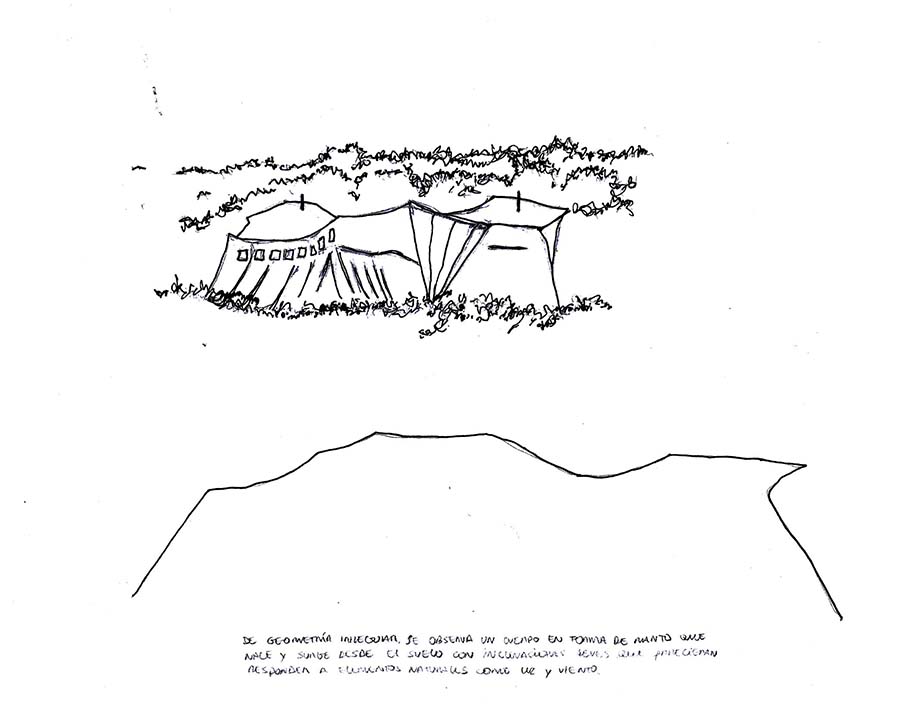 DE GEOMETRÍA IRREGULAR, SE OBSERVA UN CUERPO EN FORMA DE MANTO QUE
NACE Y SURGE DESDE EL SUELO CON INCLINACIONES LEVES QUE PARECIERAN
RESPONDER A ELEMENTOS NATURALES COMO LUZ Y VIENTO.